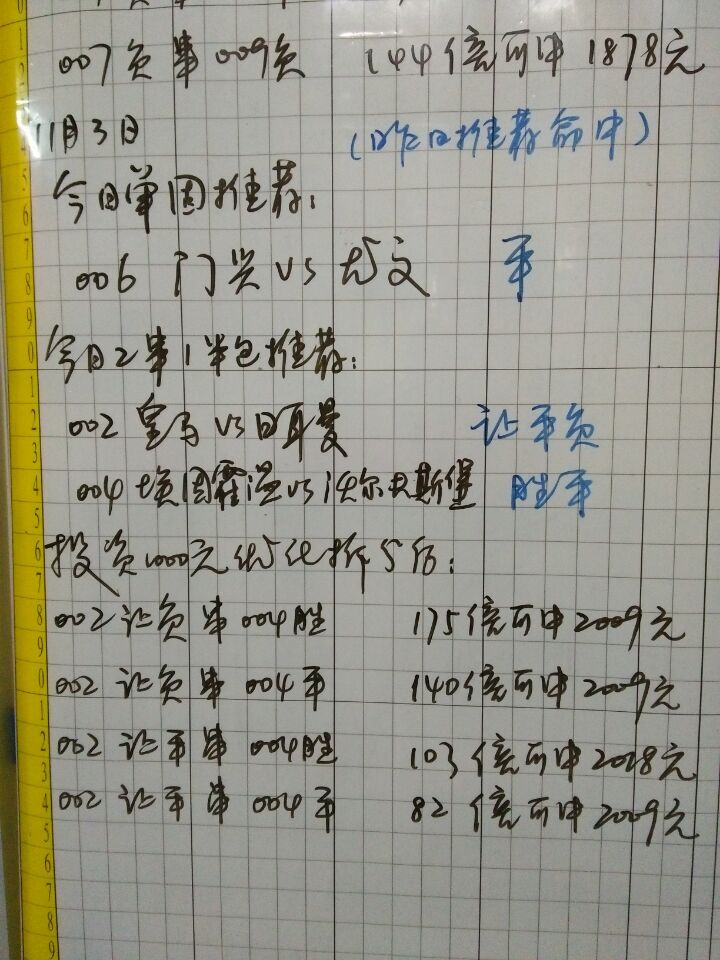 007负串009负 144倍可中1878元
11月3日 (昨日推荐命中)
今日单固推荐:
006 门兴VS尤文 平
今日2串1半包推荐:
002 皇马VS日耳曼 让平负
004 埃因霍温VS沃尔夫斯堡 胜平
投资1000元优化拆分后:
002让负串004胜 175倍可中2009元
002 让负串004平 140倍可中2009元
002 让平串004胜 103倍可中2028元
002 让平串004平 82倍可中2009元